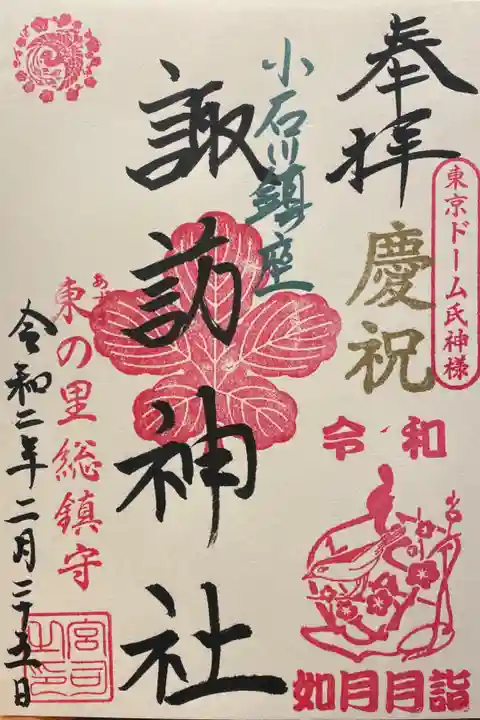 奉拝
東京ドーム氏神様
慶祝
令和
如月月詣
小石川鎮座
諏訪神社
あづま
東の里総鎮守
宮司之印
令和二年二月二十五日